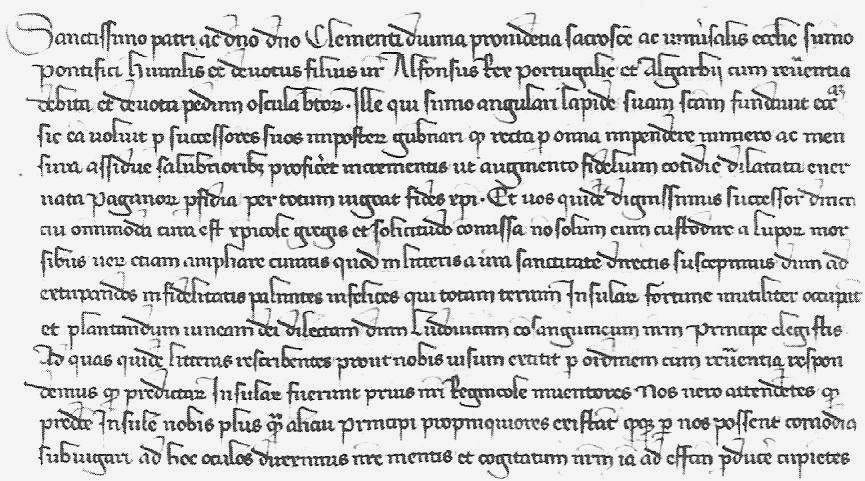 Sanctissimo patri ac dno dno Clementi divina providetia sacrosce ac universalis ecclie sumo
pontifici humilis et devotus filius vr Alfonsus Rex Portugalie et Algarbii cum reverentia
debita et devota pedum oscula btor. Ille qui sumo angulari lapide suam scam fundavit ecc
sic ea voluit p successores suos imposter gubnari qp recta p omnia impendere numero ac men
sura assidue salubrioribz proficeret incrementis ut augmento fidelium cotidie dilatata ener
vata paganor pfidia per totum vigeat fides xpi. Et vos quidē dignissimus successor
cui omnimoda cura est xpicole gregis et solicitudo comissa no solum eum custodire a lupor mor
sibus ver etiam ampliare curatis quod in litteris a vra sanctitate directis suscepimus dum ad
extirpandos infidelitatis palmites infelices qui totam terram Insular fortune inutiliter occupat
et plantandum vineam dei dilectam dnm Ludovicum cosanguineum nrm Principe elegistis
Ad quas quidē litteras rescribentes prout nobis visum extitit p ordinem cum reverentia respon
demus qp predictar Insular fuerunt prius nri Regnicole inventores Nos vero attendetes qp
predcte Insule nobis plus qm alicui principi propinquiores existat qqz p nos possent comodia
subiugari ad hoc oculos direximus nre mentis et cogitatum nrm ia ad effcm pducere cupietes